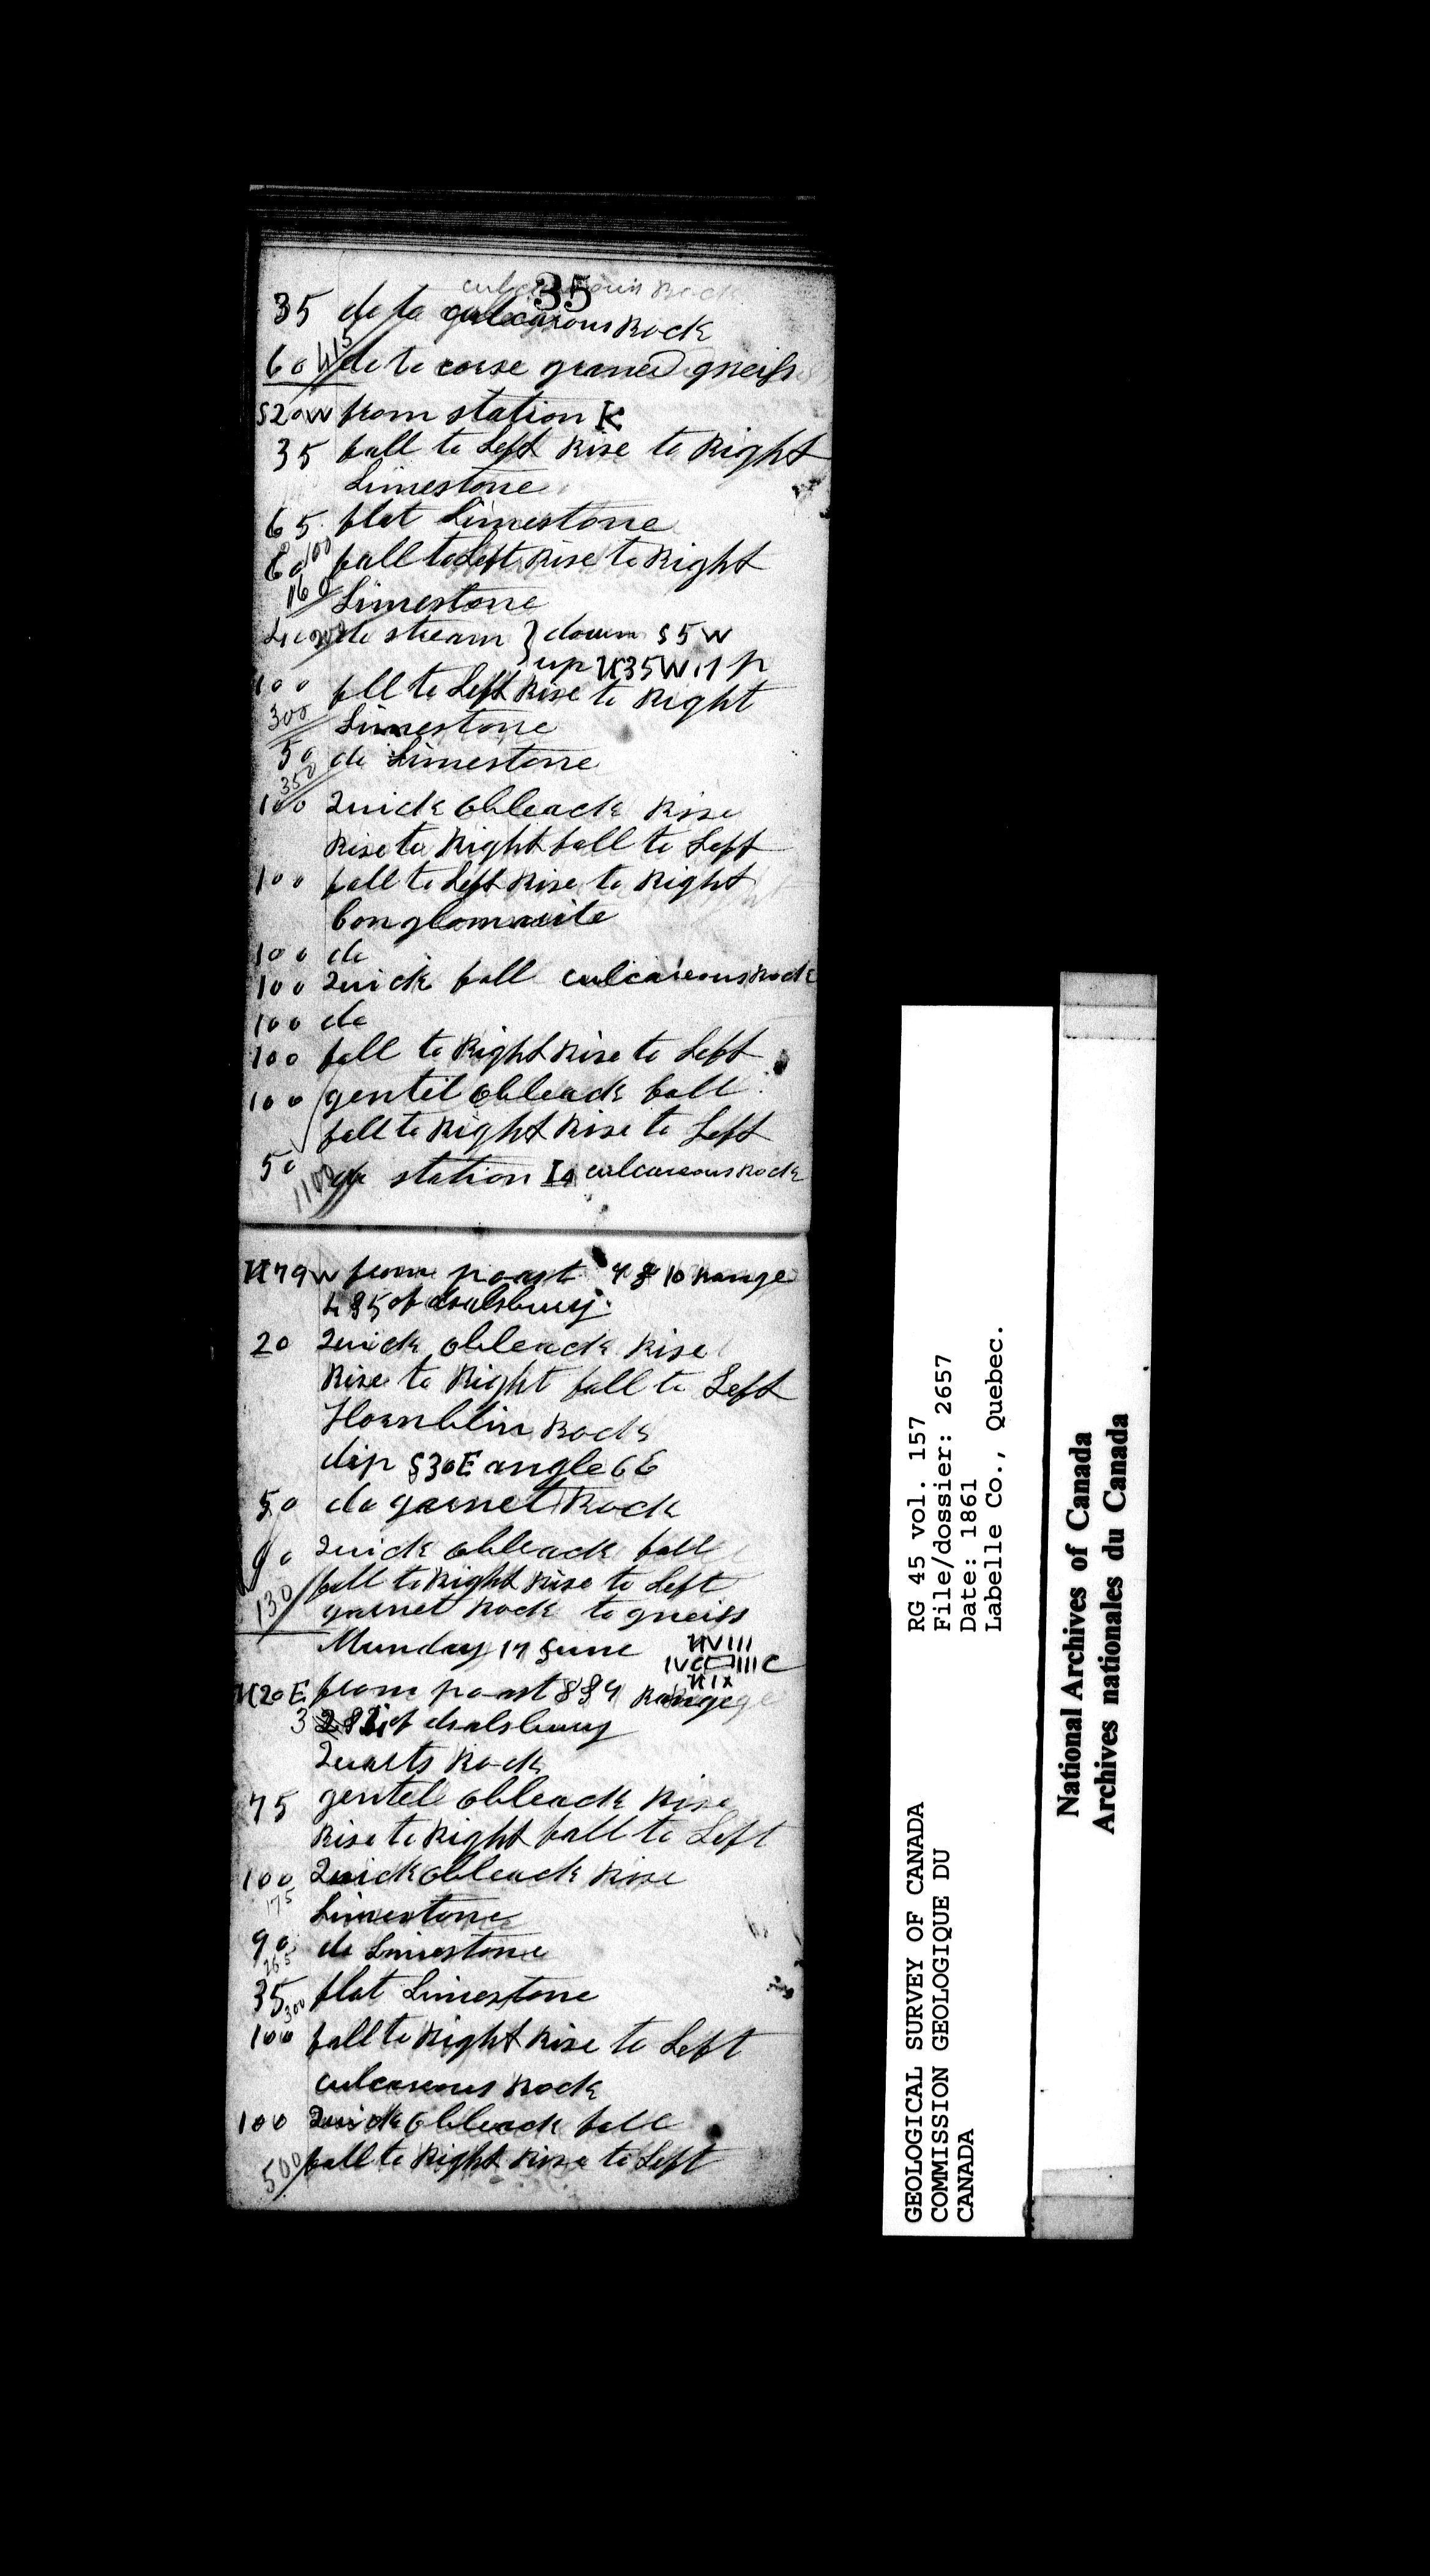 35
culcarous Rock
35 do to culcarous Rock
60 415 do to corse graned gneiss
S20W from station K
35 fall to Left Rise to Right
Limestone
65 flat Limestone
60 100 fall to Left Rise to Right
160 Limestone
40 200 do stream } down S5W
up N35W 17 p
100 fll to Left Rise to Right
300 Limestone
50 do Limestone
350
100 Quick obleack Rise
Rise to Right fall to Left
100 fall to Left Rise to Right
Conglomarite
100 do
100 Quick fall culcareous Rock
100 do
100 fall to Right Rise to Left
100 gentil obleack fall
fall to Right Rise to Left
50 station culcareous Rock
1100
N79W from poast 9 & 10 Range
4 & 5 of dsalsbury
20 Quick obleack Rise
Rise to Right fall to Left
Hornblin Rock
dip S30E angle 66
50 do garnet Rock
60 Quick obleack fall
fall to Right Rise to Left
130 garnet Rock to gneiss
Munday 17 June NVIII
IVC IIIC
NIX
N20E from poast 8 & 9 Range
3 of dsalsbury
Quarts Rock
75 gentell obleack Rise
Rise to Right fall to Left
100 Quick obleack Rise
175 Limestone
90 do Limestone
265
35 flat Limestone
300
100 fall to Right Rise to Left
culcareous Rock
100 Quick obleack fall
500 fall to Right Rise to Left
GEOLOGICAL SURVEY OF CANADA
COMMISSION GEOLOGIQUE DU
CANADA
RG 45 vol. 157
File/dossier: 2657
Date: 1861
Labelle Co., Quebec.
National Archives of Canada
Archives nationales du Canada